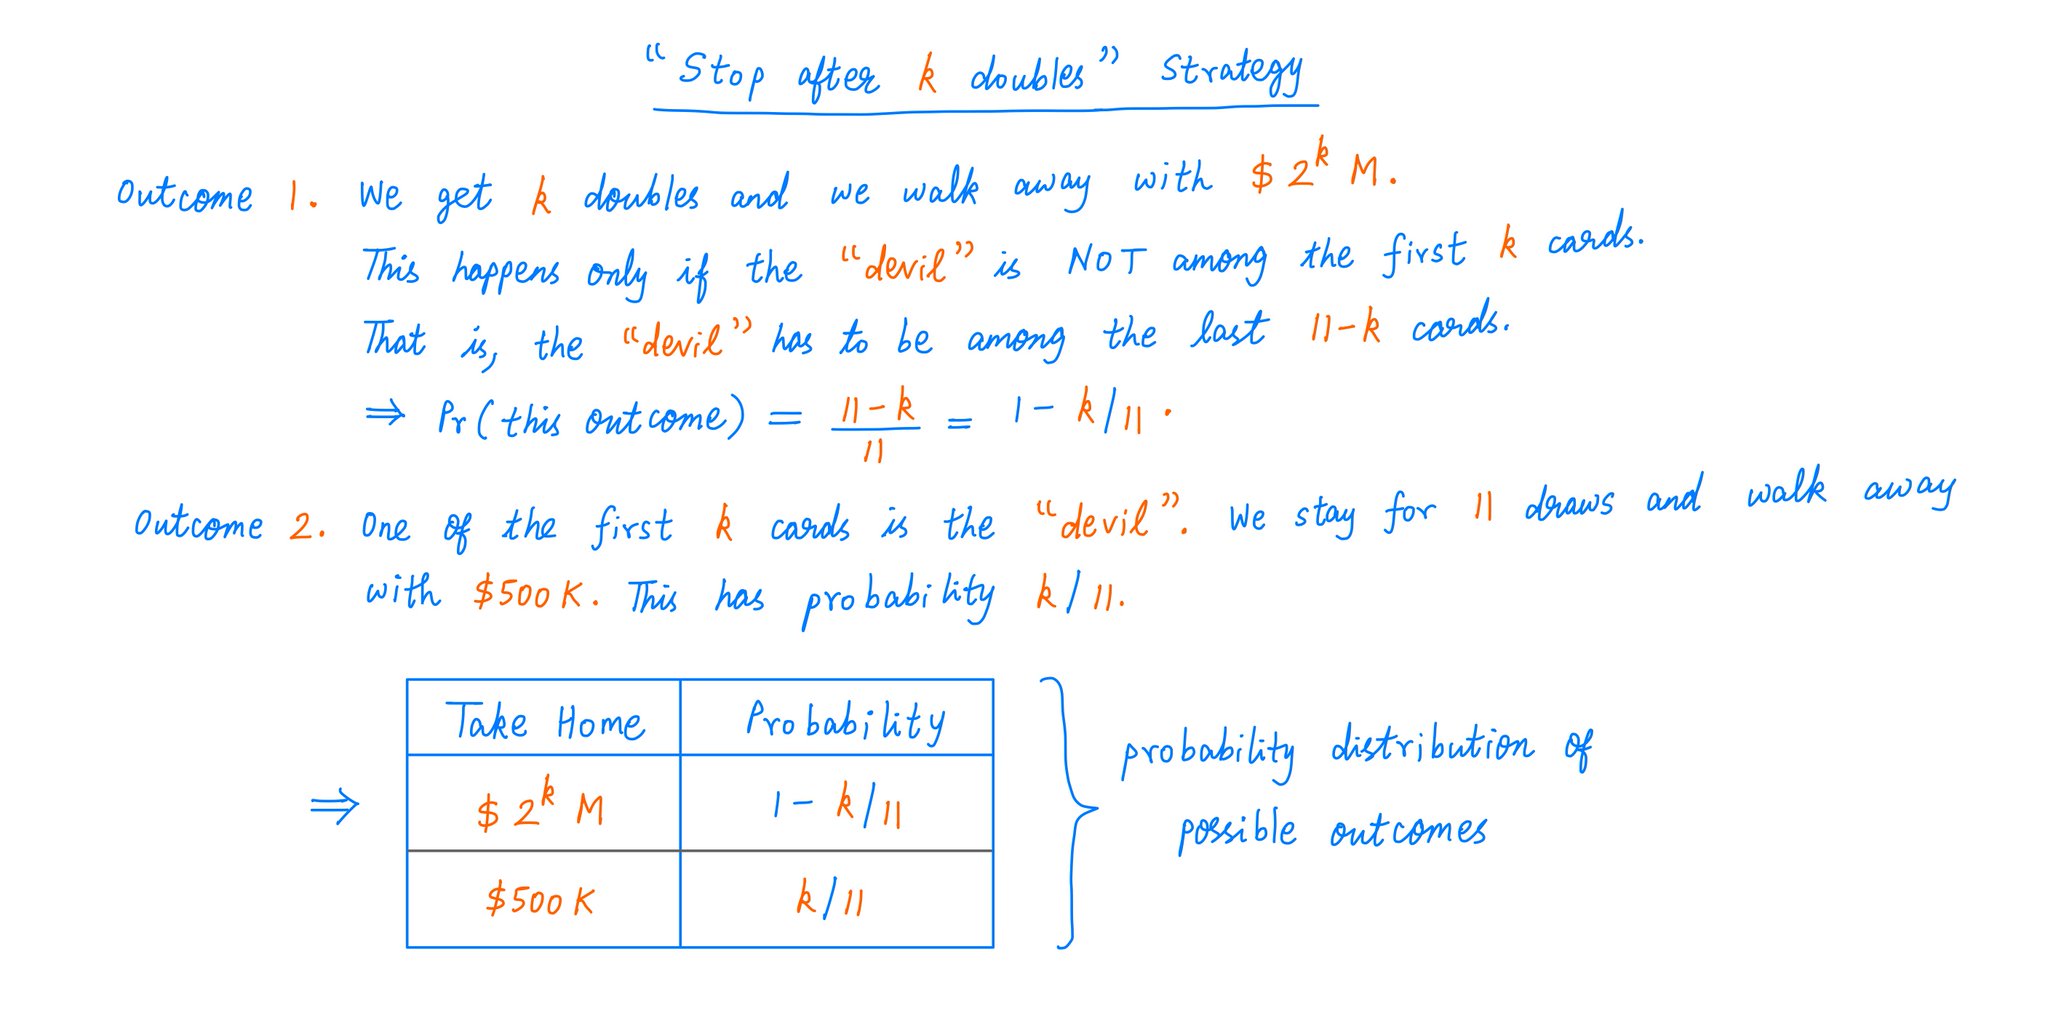 “Stop after k doubles” Strategy
Outcome 1. We get k doubles and we walk away with $ 2^k M.
This happens only if the “devil” is NOT among the first k cards.
That is, the “devil” has to be among the last 11-k cards.
⇒ Pr(this outcome) = (11-k)/11 = 1 - k/11.
Outcome 2. One of the first k cards is the “devil”. We stay for 11 draws and walk away
with $500K. This has probability k/11.
Take Home Probability
⇒ $ 2^k M 1 - k/11
$500K k/11
probability distribution of
possible outcomes